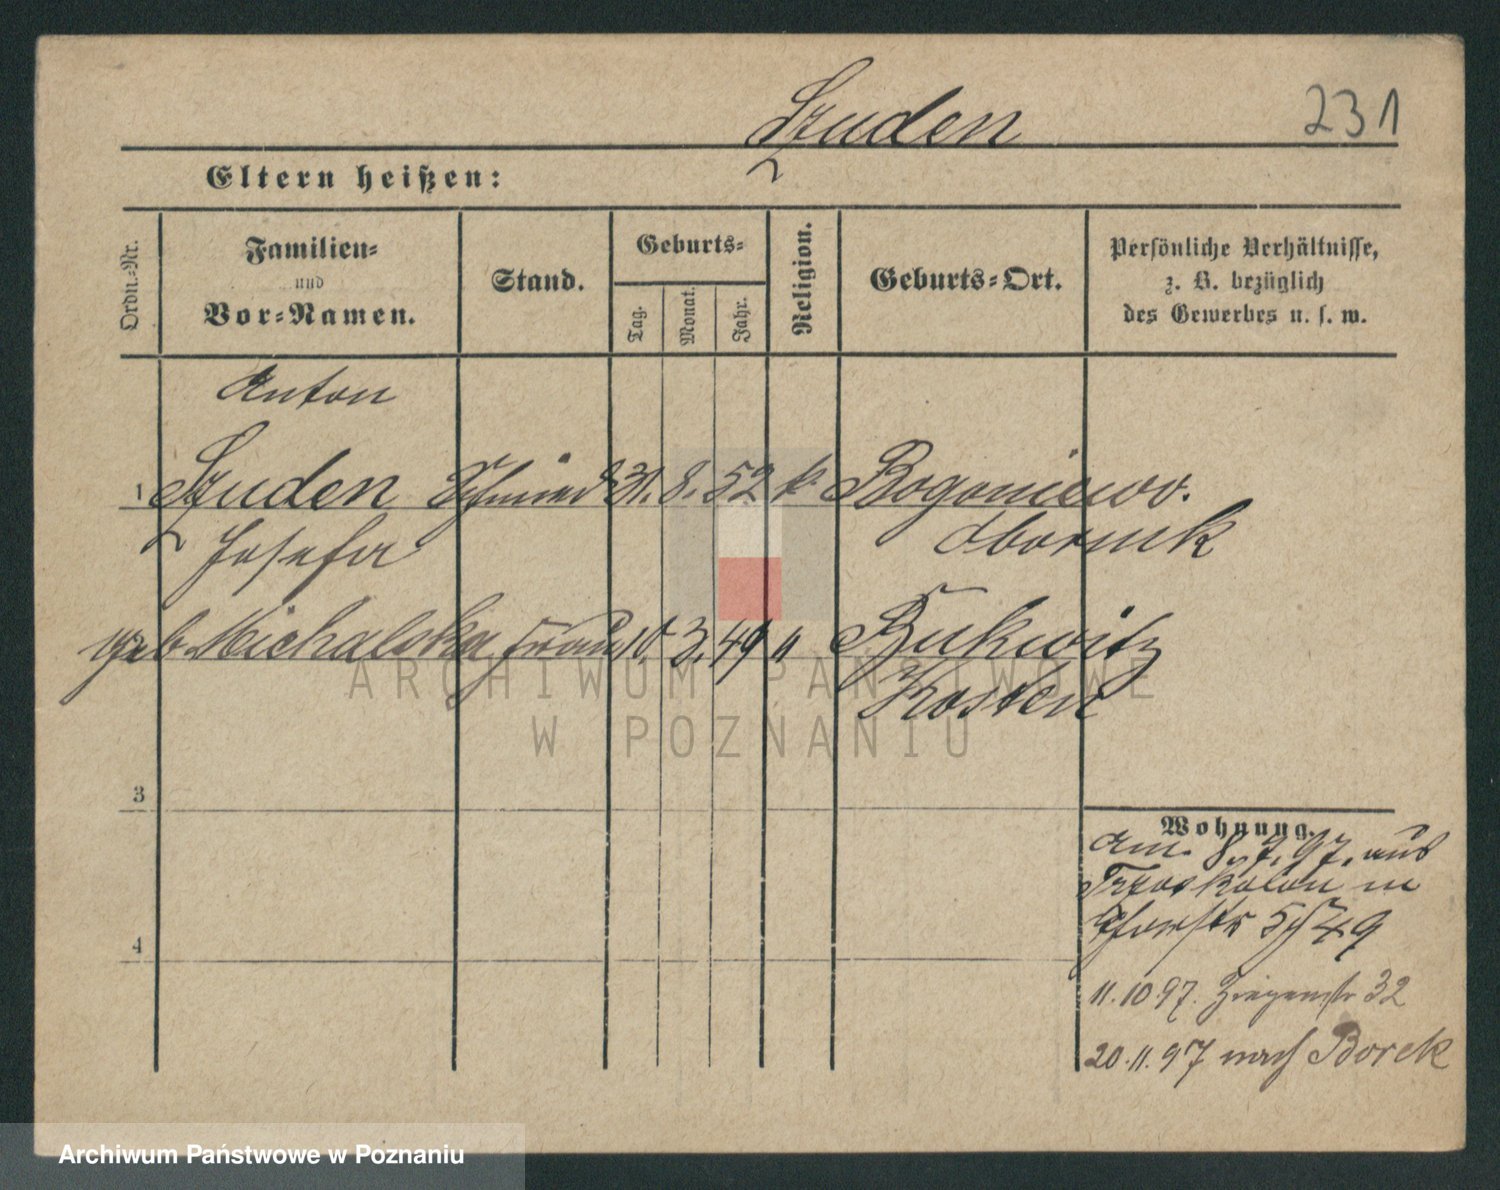 Szuden
231
Eltern heißen:
Ordn.-Nr.
Familien-
und
Vor-Namen.
Stand.
Geburts-
Tag.
Monat.
Jahr.
Religion.
Geburts-Ort.
Persönliche Verhältnisse,
z. B. bezüglich
des Gewerbes u. s. w.
Anton
1 Szuden Schmied 31. 8. 52 k. Bogoniewo.
Obornik
Josefa
2 geb Michalska Frau 10. 3. 49 " Bukwitz
Kosten
ARCHIWUM PAŃSTWOWE
W POZNANIU
3
Wohnung.
am 8. 7. 97. aus
in
4
11.10.97. Ziegenstr 32
20.11.97 nach Borek
Archiwum Państwowe w Poznaniu